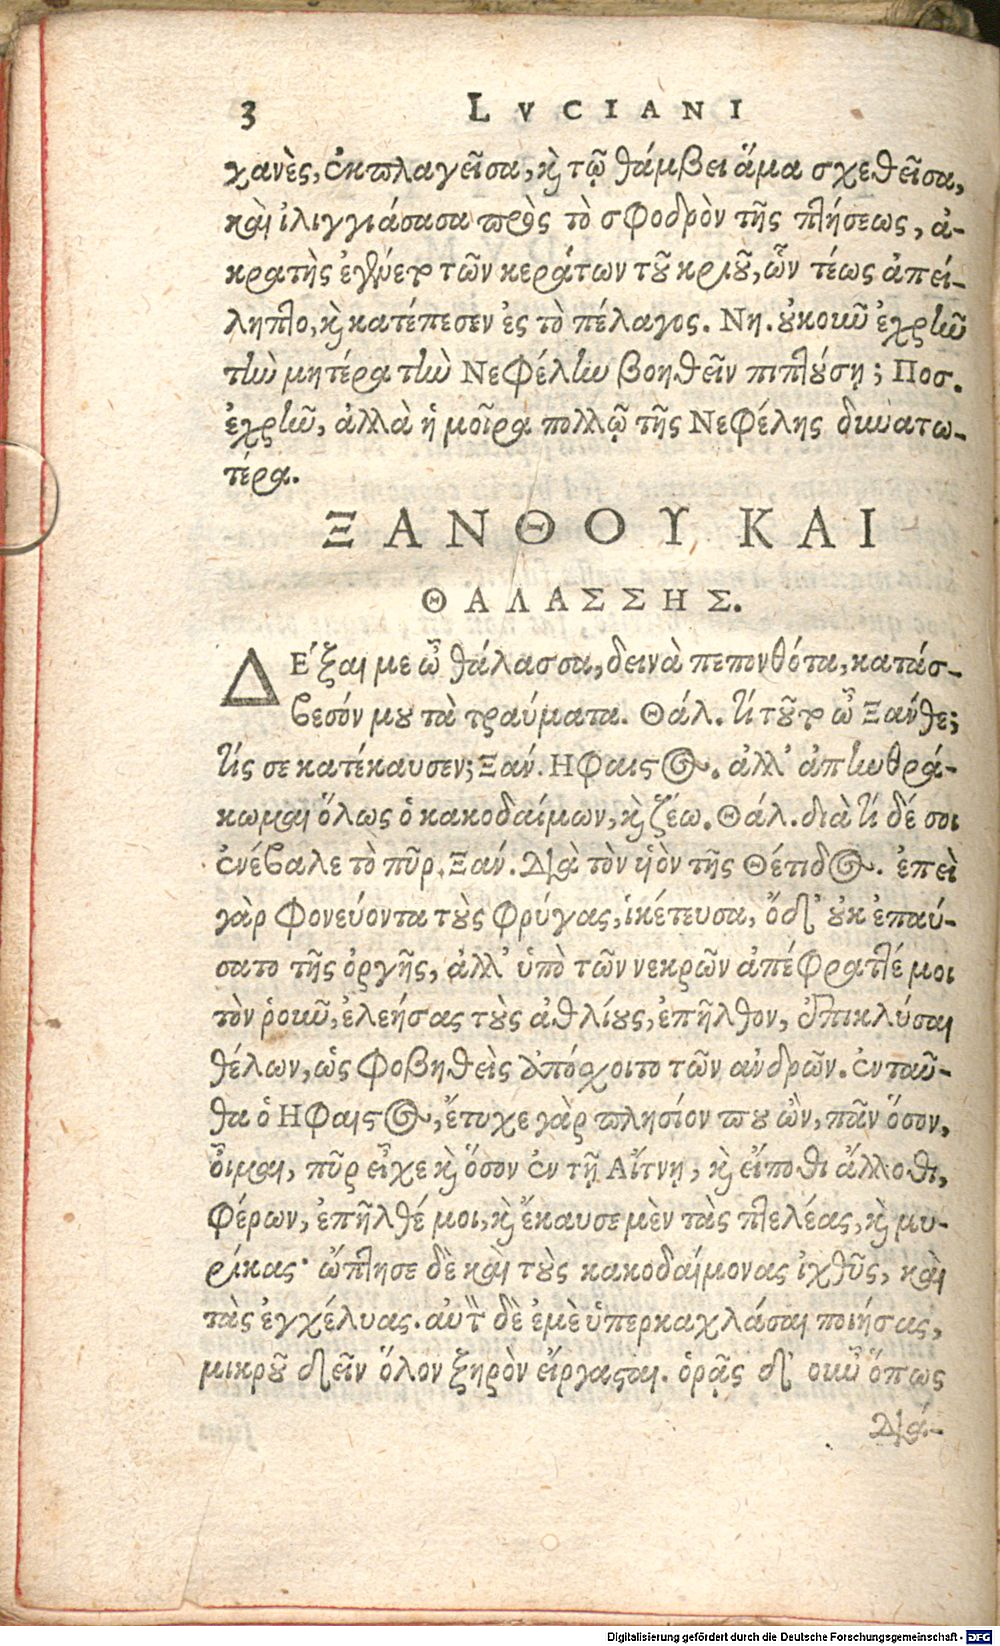 3 LVCIANI
χανὲς, ἐκπλαγεῖσα, καὶ τῷ θάμβει ἅμα σχεθεῖσα,
καὶ ἰλιγγιάσασα πρὸς τὸ σφοδρὸν τῆς πτήσεως, ἀ-
κρατὴς ἐγένετο τῶν κεράτων τοῦ κριοῦ, ὧν τέως ἀπεί-
ληπτο, καὶ κατέπεσεν ἐς τὸ πέλαγος. Νη. οὐκοῦν ἐχρῆν
τὴν μητέρα τὴν Νεφέλην βοηθεῖν πιπτούσῃ; Ποσ.
ἐχρῆν, ἀλλὰ ἡ μοῖρα πολλῷ τῆς Νεφέλης δυνατω-
τέρα.
ΞΑΝΘΟΥ ΚΑΙ
ΘΑΛΑΣΣΗΣ.
ΔΈξαι με ὦ θάλασσα, δεινὰ πεπονθότα, κατάσ-
βεσόν μου τὰ τραύματα. Θάλ. τί τοῦτο ὦ Ξάνθε;
τίς σε κατέκαυσεν; Ξαν́. Ηφαιστος. ἀλλ' ἀπηνθρά-
κωμαι ὅλως ὁ κακοδαίμων, καὶ ζέω. Θάλ. διὰ τί δέ σοι
ἐνέβαλε τὸ πῦρ. Ξαν́. Διὰ τὸν ὑὸν τῆς Θέτιδος. ἐπεὶ
γὰρ φονεύοντα τοὺς Φρύγας, ἱκέτευσα, ὅδ' οὐκ ἐπαύ-
σατο τῆς ὀργῆς, ἀλλ' ὑπὸ τῶν νεκρῶν ἀπέφραττέ μοι
τὸν ῥοῦν, ἐλεήσας τοὺς ἀθλίους, ἐπῆλθον, ἐπικλύσαι
θέλων, ὡς φοβηθεὶς ἀπόσχοιτο τῶν ἀνδρῶν. ἐνταῦ-
θα ὁ Ηφαιστος, ἔτυχε γὰρ πλησίον που ὢν, πᾶν ὅσον,
οἶμαι, πῦρ εἶχε καὶ ὅσον ἐν τῇ Αἴτνῃ, καὶ εἴποθι ἄλλοθι,
φέρων, ἐπῆλθέ μοι, καὶ ἔκαυσε μὲν τὰς πτελέας, καὶ μυ-
ρίκας· ὤπτησε δὲ καὶ τοὺς κακοδαίμονας ἰχθῦς, καὶ
τὰς ἐγχέλυας. αὐτὸν δὲ ἐμὲ ὑπερκαχλάσαι ποιήσας,
μικροῦ δεῖν ὅλον ξηρὸν εἴργασται. ὁρᾷς δ' οὖν ὅπως
Διά-
Digitalisierung gefördert durch die Deutsche Forschungsgemeinschaft - DFG